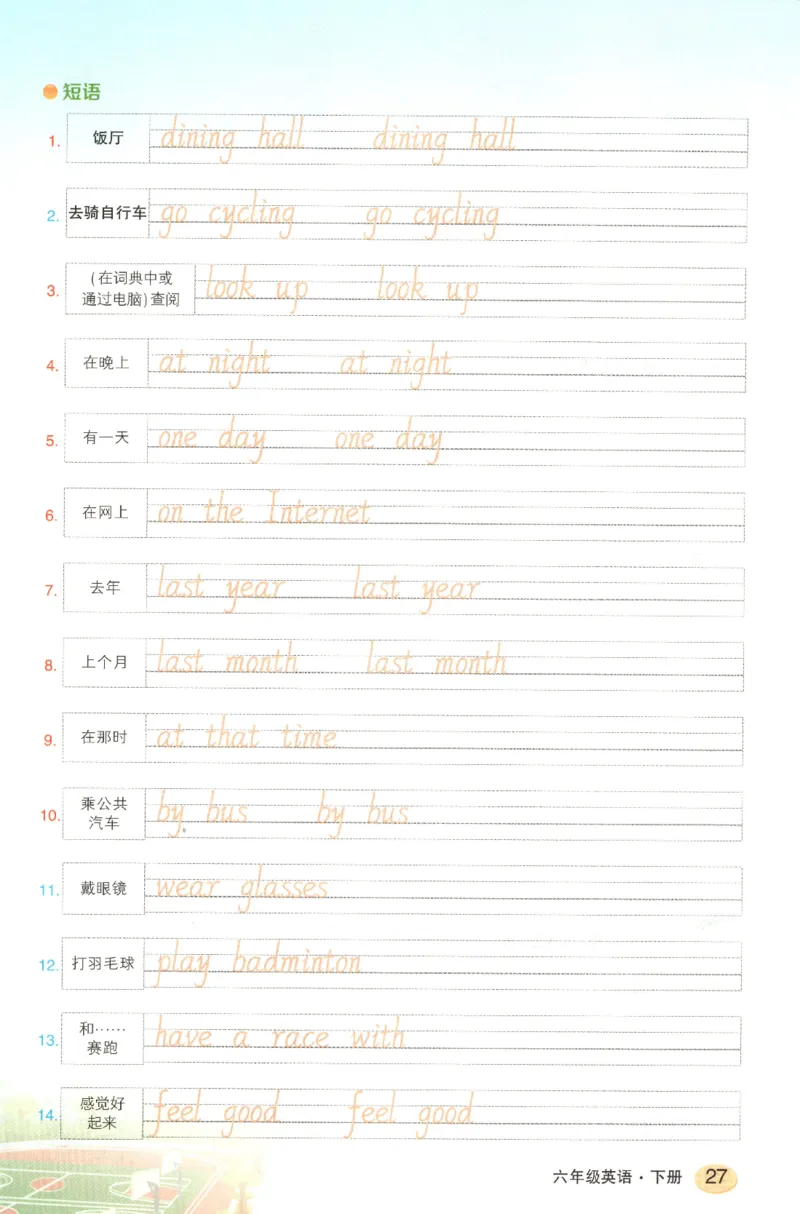 短语
1. 饭厅 dining hall dining hall
2. 去骑自行车 go cycling go cycling
3. (在词典中或
通过电脑)查阅 look up look up
4. 在晚上 at night at night
5. 有一天 one day one day
6. 在网上 on the Internet
7. 去年 last year last year
8. 上个月 last month last month
9. 在那时 at that time
10. 乘公共
汽车 by bus by bus
11. 戴眼镜 wear glasses
12. 打羽毛球 play badminton
13. 和……
赛跑 have a race with
14. 感觉好
起来 feel good feel good
六年级英语·下册 27